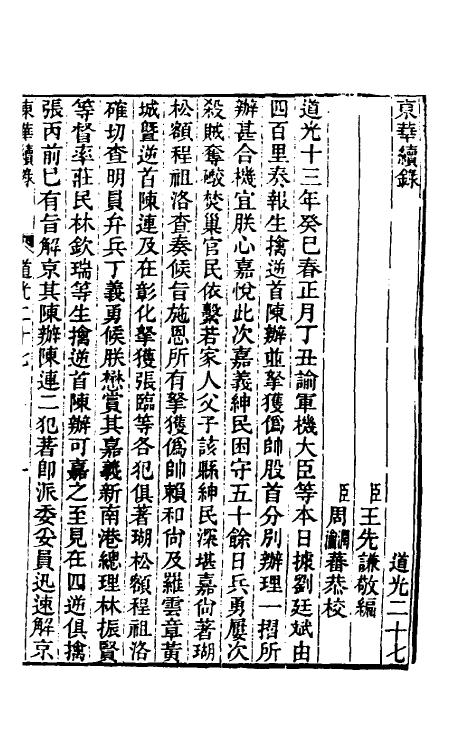 東華續錄　道光二十七
臣王先謙敬編
臣周潤蕃周瀹蕃恭校
道光十三年癸巳春正月丁丑諭軍機大臣等本日據劉廷斌由
四百里奏報生擒逆首陳辦並拏獲僞帥股首分別辦理一摺所
辦甚合機宜朕心嘉悅此次嘉義紳民困守五十餘日兵勇屢次
殺賊奪礮焚巢官民依繫若家人父子該縣紳民深堪嘉尙著瑚
松額程祖洛查奏候旨施恩所有拏獲僞帥賴和尙及羅雲章黃
城曁逆首陳連及在彰化拏獲張臨等各犯俱著瑚松額程祖洛
確切查明員弁兵丁義勇候朕懋賞其嘉義新南港總理林振賢
等督率莊民林欽瑞等生擒逆首陳辦可嘉之至見在四逆俱擒
張丙前已有旨解京其陳辦陳連二犯著卽派委妥員迅速解京
東華續錄　道光二十七　一